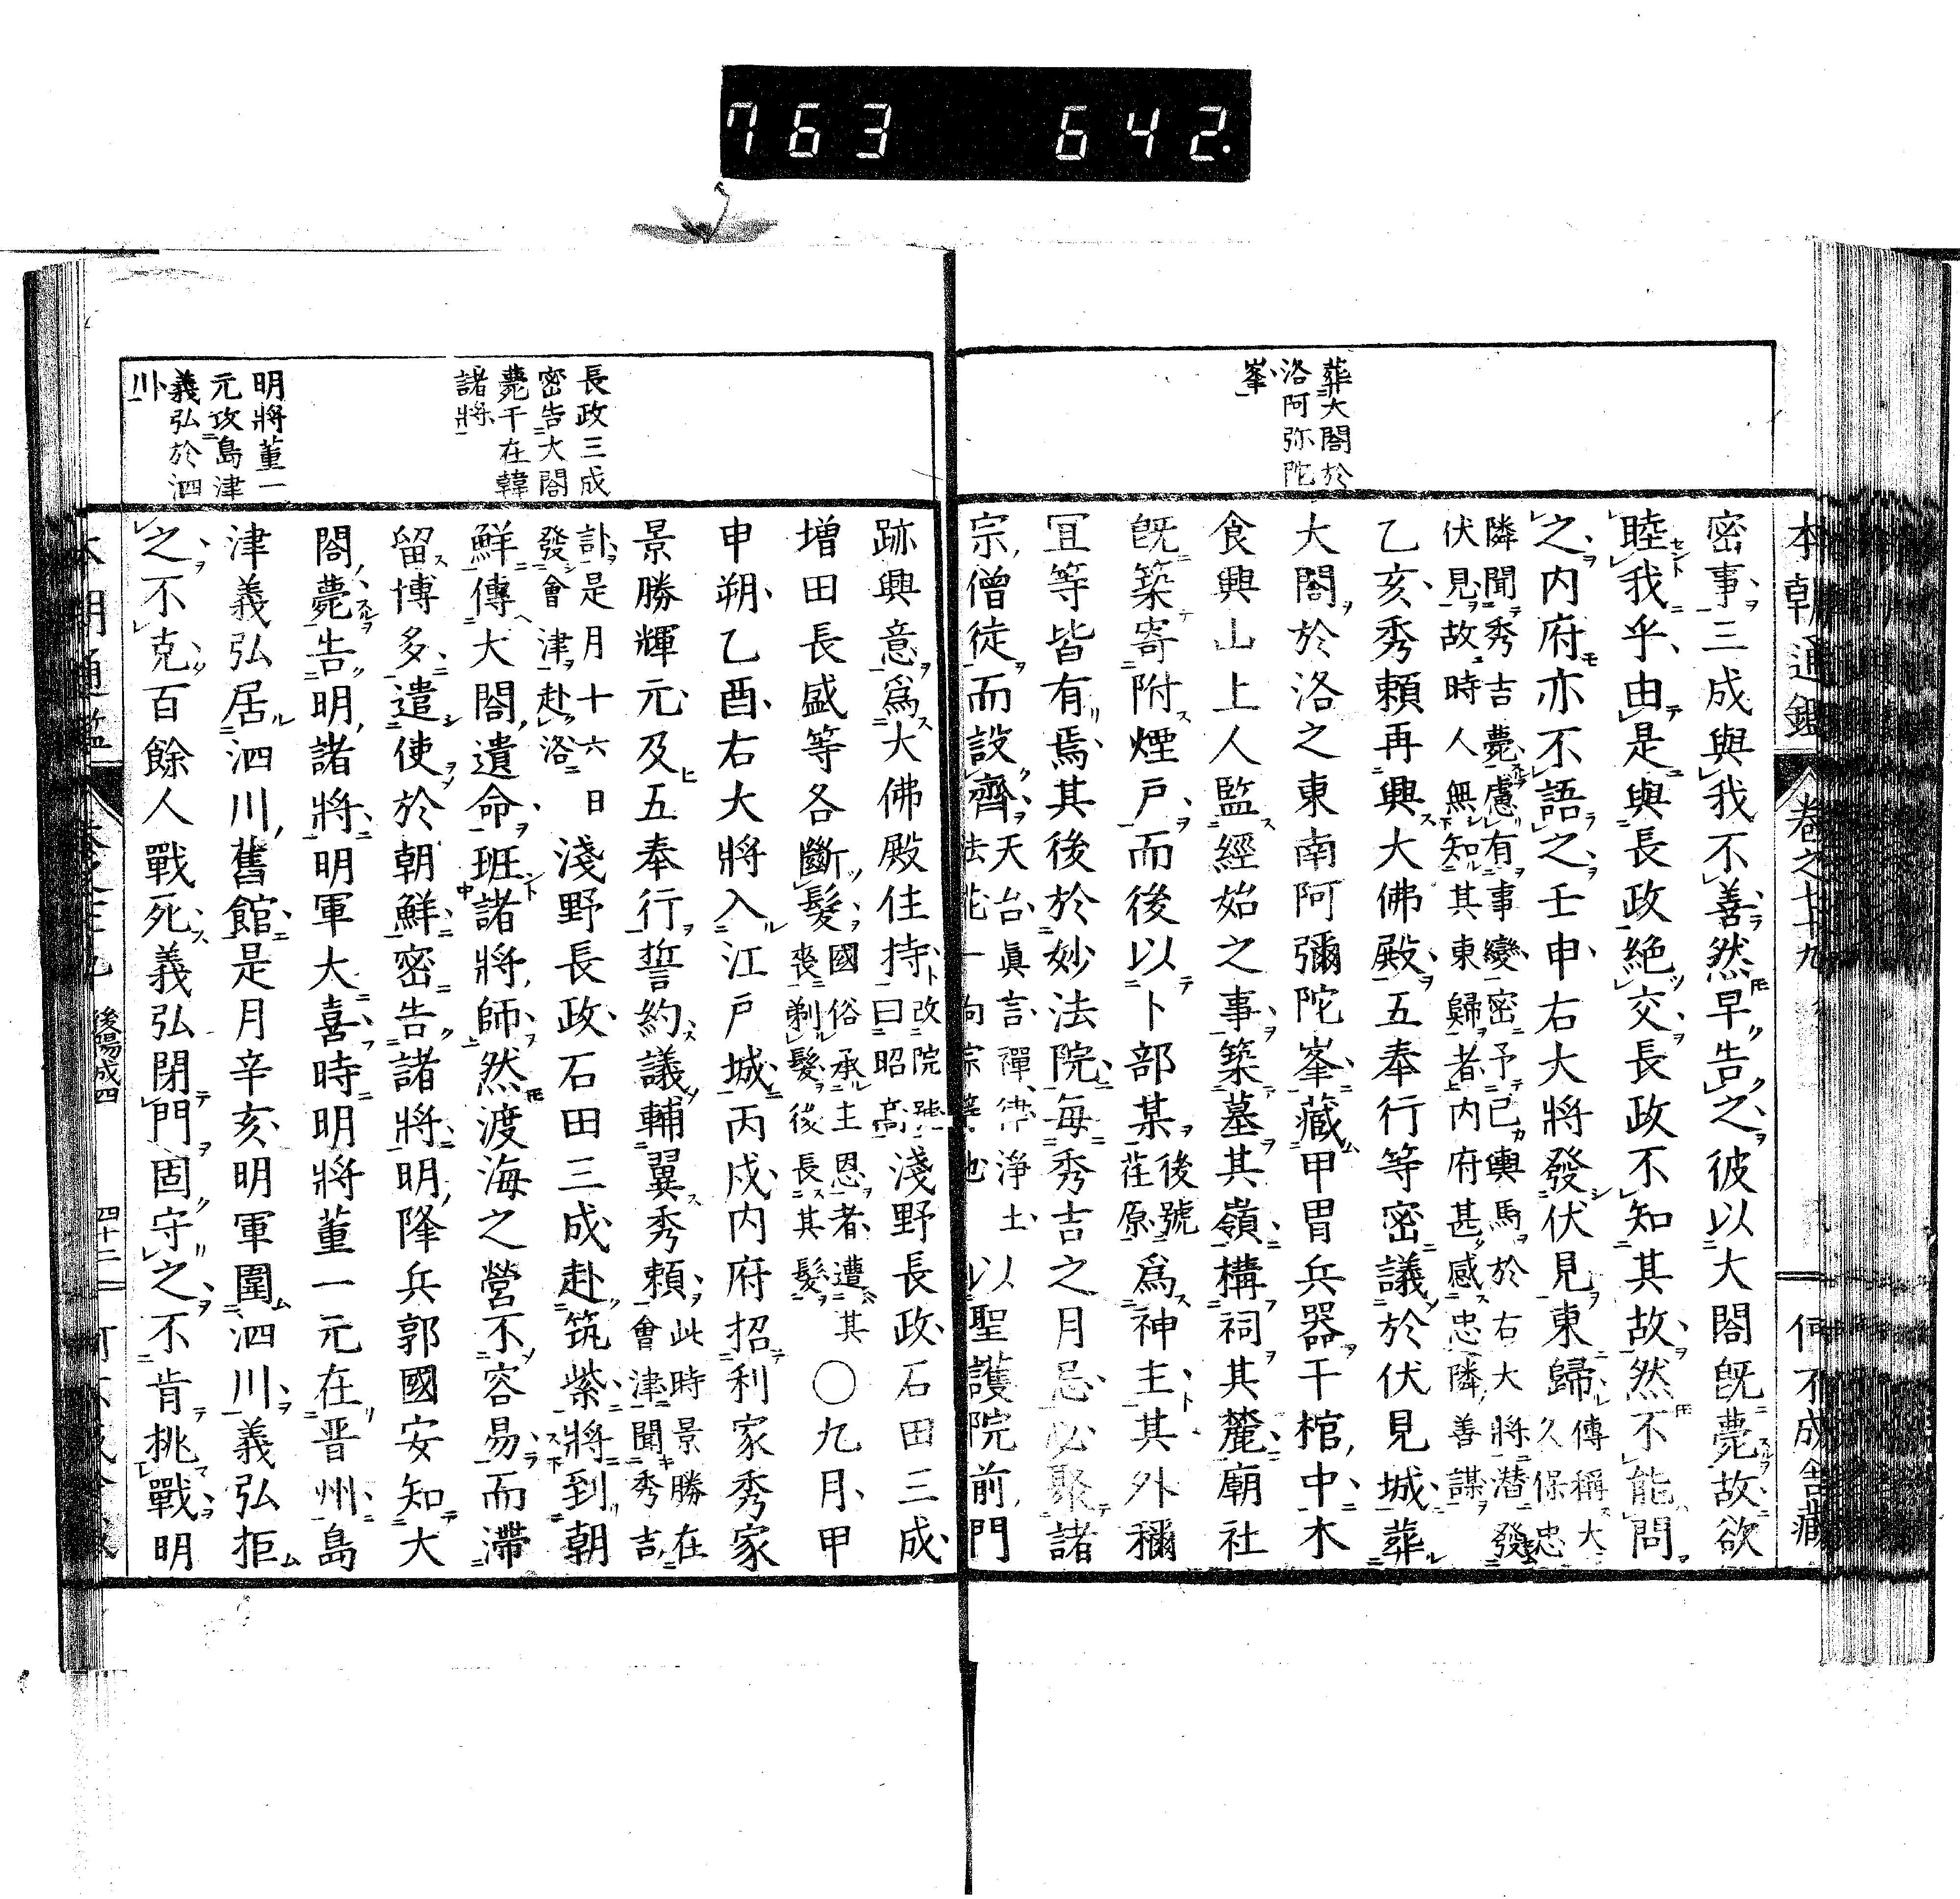 763 642.
本朝通鑑 卷之七十九 何不成舍藏
葬大閤於
洛阿弥陀
峯
密事三成與我不善然早告之彼以大閤旣薨故欲
睦我乎由是與長政絶交長政不知其故然不能問
之内府亦不語之壬申右大將發伏見東歸傳稱大久保忠
隣聞秀吉薨慮有事變密予己輿馬於右大將潜發
伏見故時人無知其東歸者内府甚感忠隣善謀
乙亥秀頼再興大佛殿五奉行等密議於伏見城葬
大閤於洛之東南阿彌陀峯藏甲胄兵器于棺中木
食興山上人監經始之事築墓其嶺構祠其麓廟社
旣築寄附煙戸而後以卜部某後號荏原爲神主其外禰
冝等皆有焉其後於妙法院毎秀吉之月忌必聚諸
宗僧徒而設齊天台眞言禪律浄土法花一向宗等也以聖護院前門
長政三成
密告大閤
薨于在韓
諸將
明將董一
元攻島津
義弘於泗
川
跡興意爲大佛殿住持改院號曰昭高淺野長政石田三成
増田長盛等各斷髮國俗承主恩者遭其喪剃髮後長其髮〇九月甲
申朔乙酉右大將入江戸城丙戌内府招利家秀家
景勝輝元及五奉行誓約議輔翼秀頼此時景勝在會津聞秀吉
訃是月十六日發會津赴洛淺野長政石田三成赴筑紫將到朝
鮮傳大閤遺命班諸將師然渡海之營不容易而滯
留博多遣使於朝鮮密告諸將明降兵郭國安知大
閤薨告明諸將明軍大喜時明將董一元在晋州島
津義弘居泗川舊館是月辛亥明軍圍泗川義弘拒
之不克百餘人戰死義弘閉門固守之不肯挑戰明
後陽成四 四十二